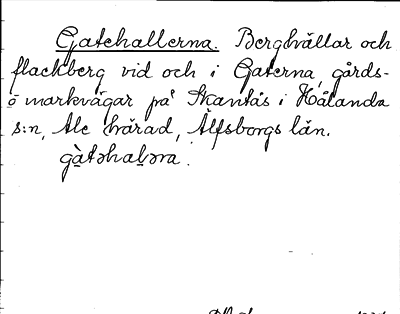 Gatehallerna. Berghällar och
flackberg vid och i Gaterna, gårds-
o markvägar på Skantås i Hålanda
s:n, Ale härad, Älfsborgs län.
gàtəhaḷəra.